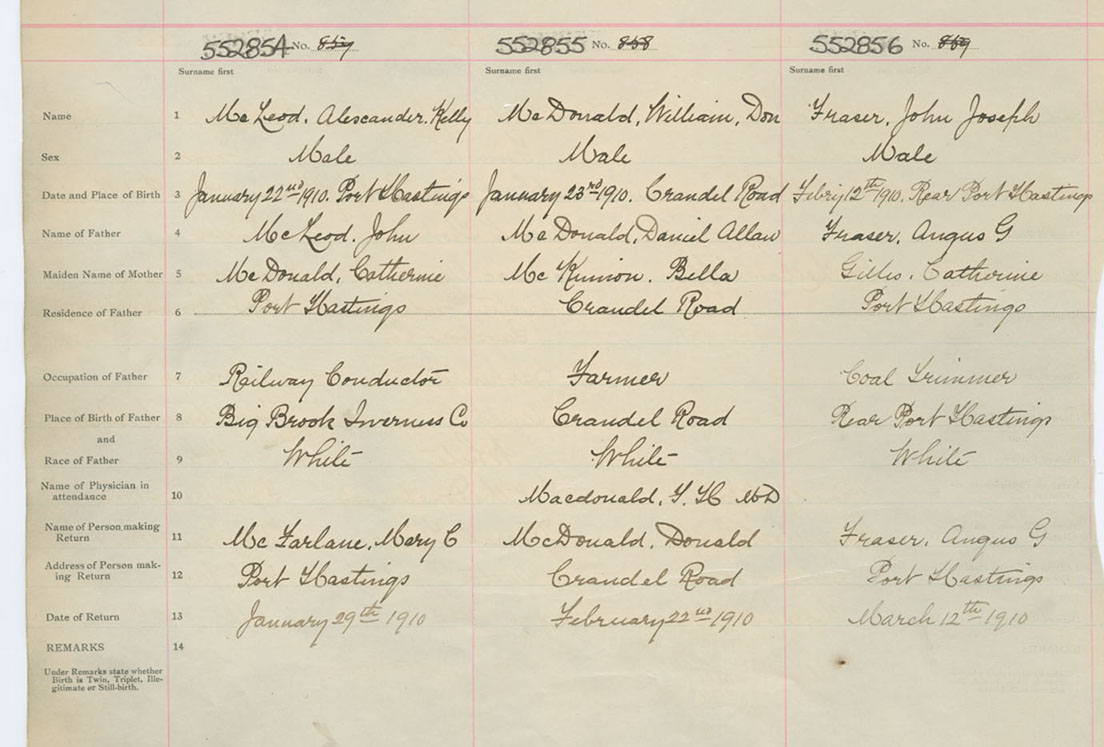 552854 No. 857 552855 No. 858 552856 No. 859
Surname first Surname first Surname first
Name 1 McLeod, Alexcander. Kelly McDonald, William, Don Fraser, John Joseph
Sex 2 Male Male Male
Date and Place of Birth 3 January 22nd 1910. Port Hastings January 23rd 1910. Crandel Road Febry 12th 1910. Rear Port Hastings
Name of Father 4 McLeod. John McDonald, Daniel Allan Fraser, Angus G
Maiden Name of Mother 5 McDonald, Catherine McKinnon. Bella Gillis, Catherine
Residence of Father 6 Port Hastings Crandel Road Port Hastings
Occupation of Father 7 Railway Conductor Farmer Coal Trimmer
Place of Birth of Father 8 Big Brook Inverness Co Crandel Road Rear Port Hastings
and
Race of Father 9 White White White
Name of Physician in
attendance 10 Macdonald, MD
Name of Person making
Return 11 McFarlane, Mary C McDonald, Donald Fraser, Angus G
Address of Person mak-
ing Return 12 Port Hastings Crandel Road Port Hastings
Date of Return 13 January 29th 1910 February 22nd 1910 March 12th 1910
REMARKS 14
Under Remarks state whether
Birth is Twin, Triplet, Ille-
gitimate or Still-birth.